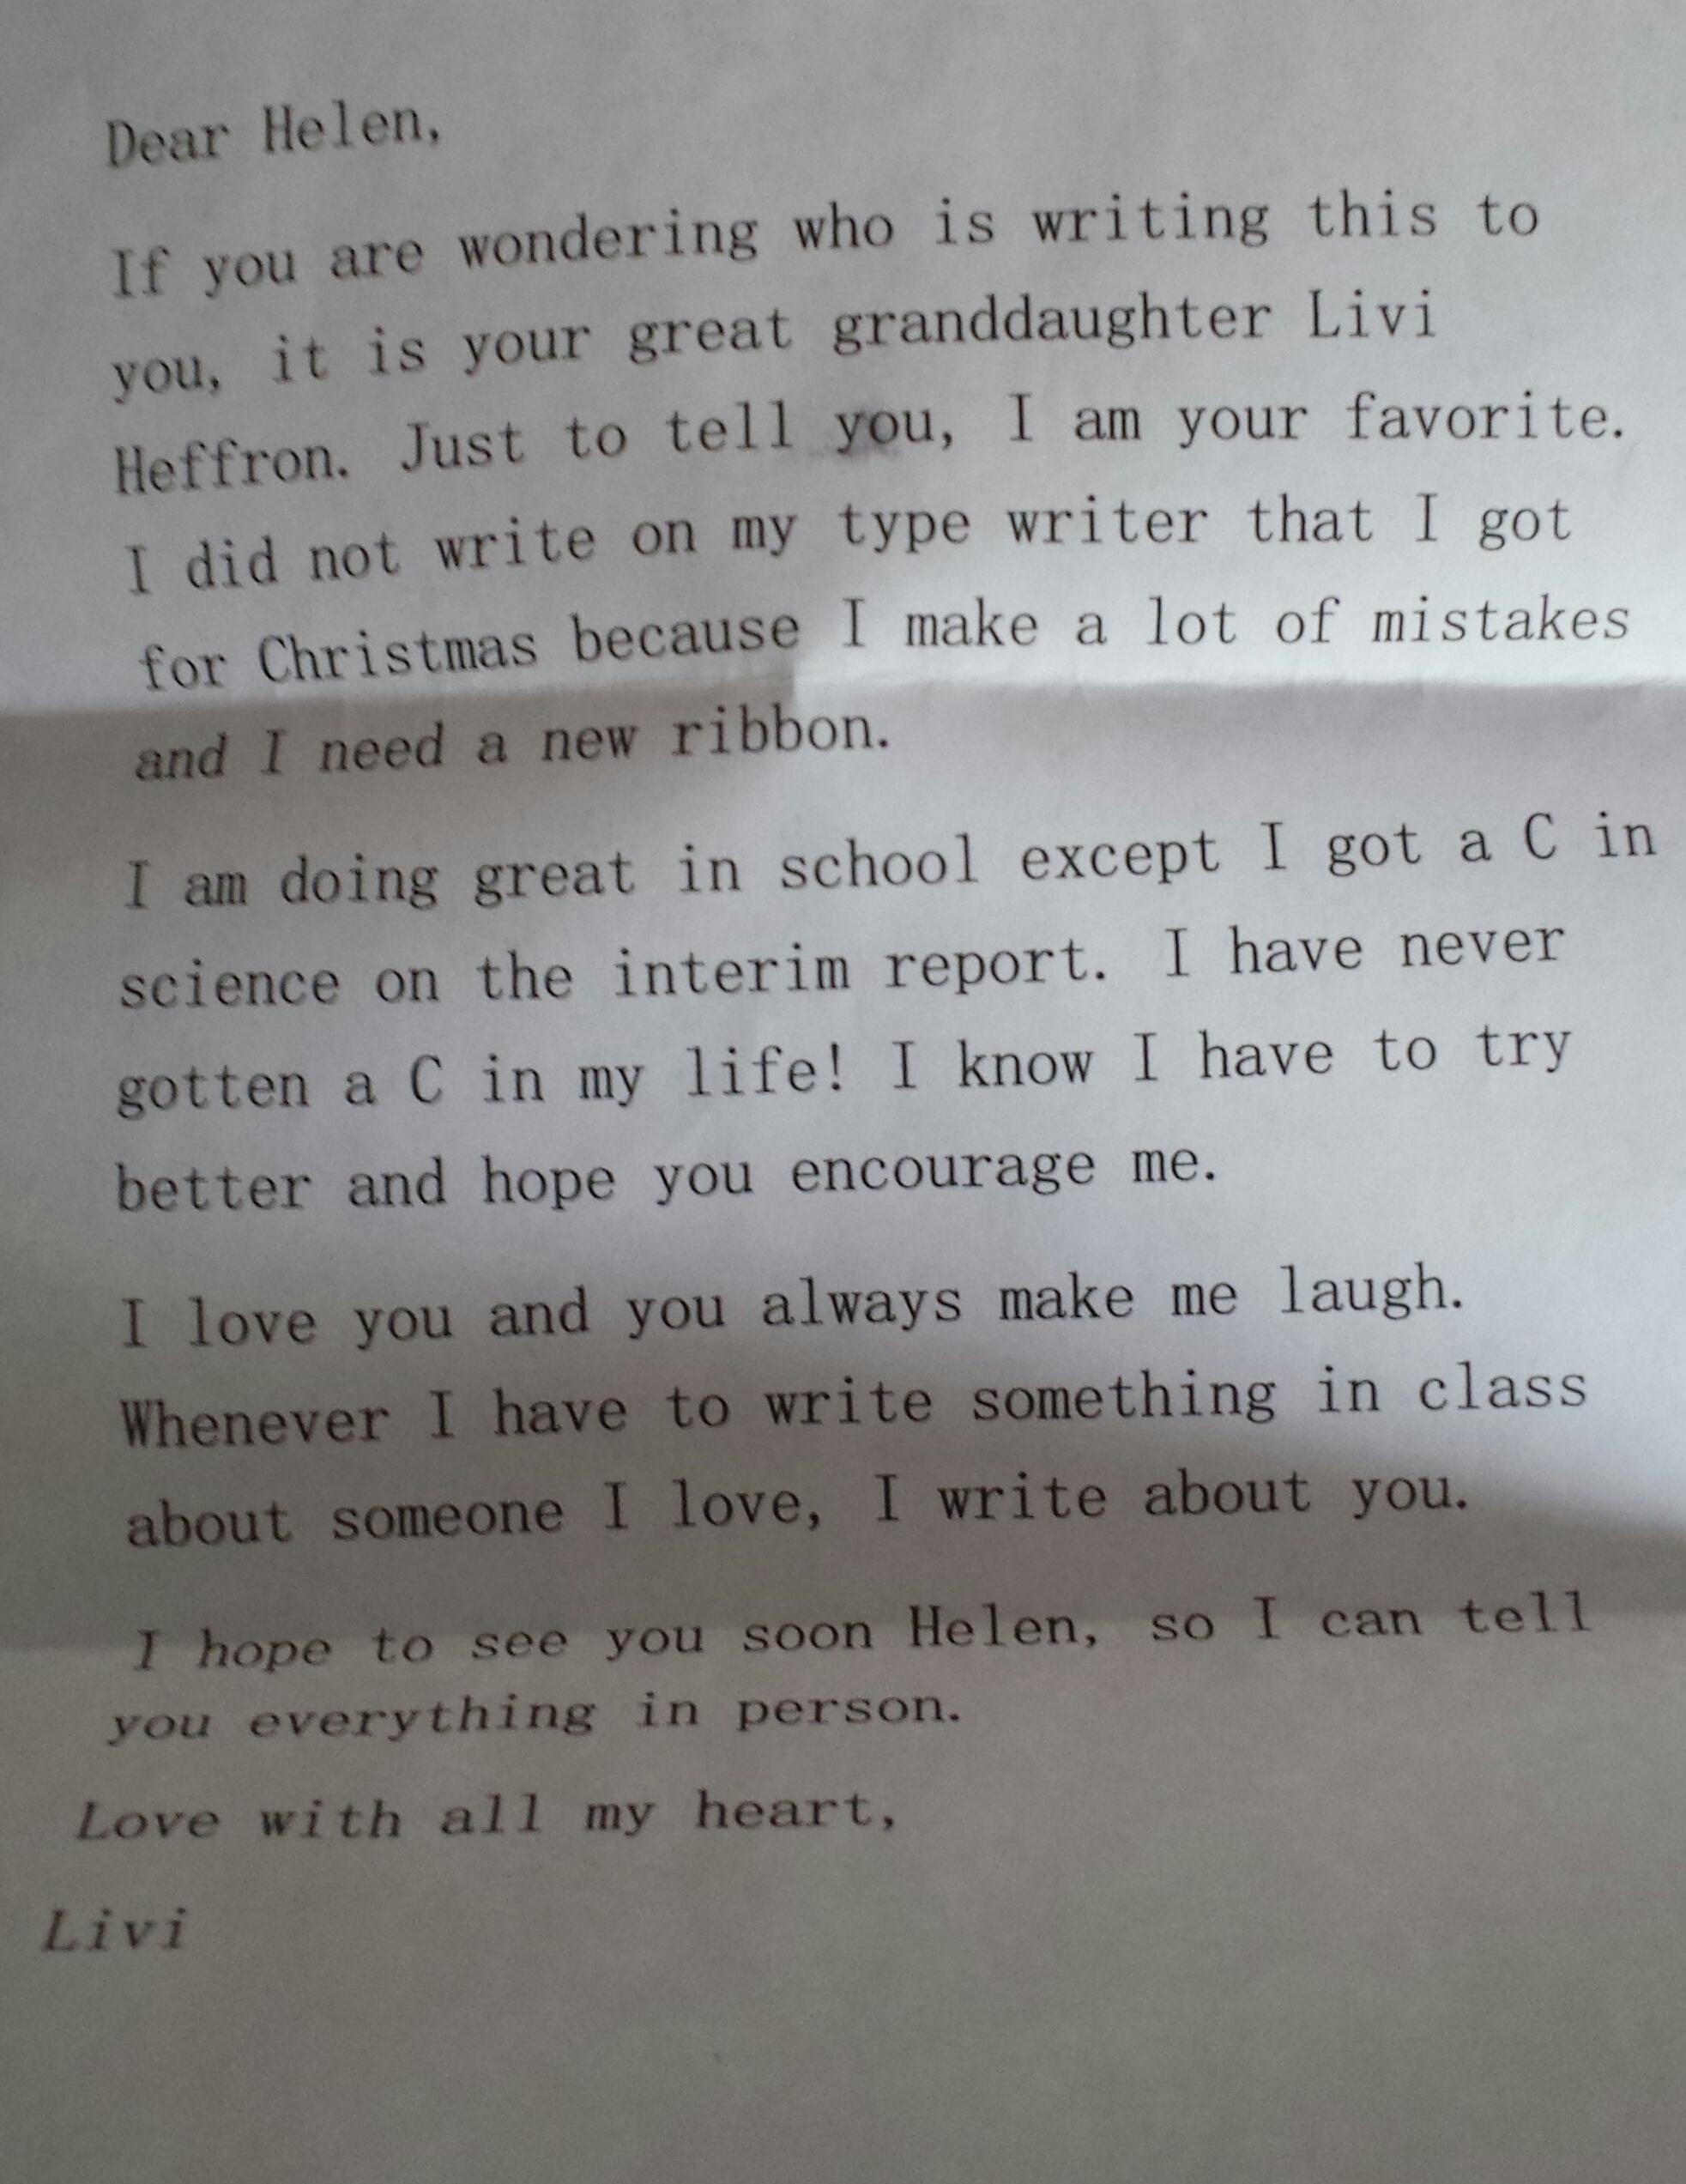 Dear Helen,
If you are wondering who is writing this to
you, it is your great granddaughter Livi
Heffron. Just to tell you, I am your favorite.
I did not write on my type writer that I got
for Christmas because I make a lot of mistakes
and I need a new ribbon.
I am doing great in school except I got a C in
science on the interim report. I have never
gotten a C in my life! I know I have to try
better and hope you encourage me.
I love you and you always make me laugh.
Whenever I have to write something in class
about someone I love, I write about you.
I hope to see you soon Helen, so I can tell
you everything in person.
Love with all my heart,
Livi